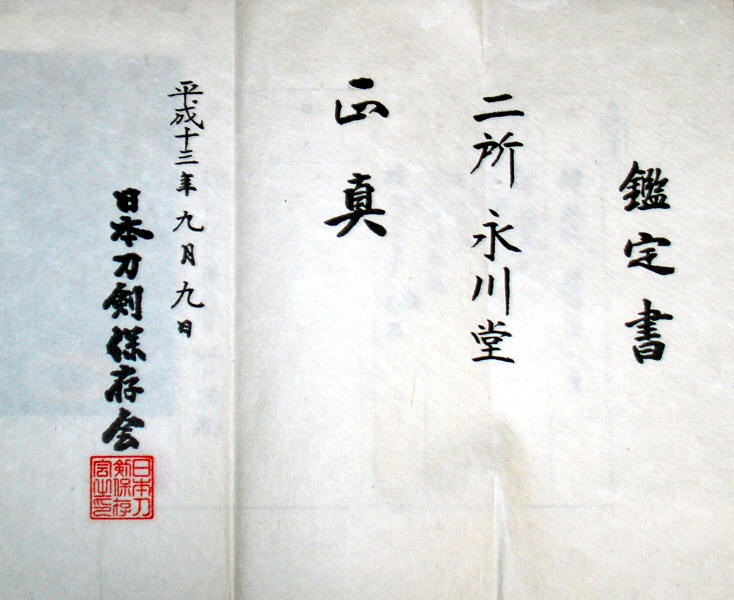 鑑定書
二所 永川堂
正真
平成十三年九月九日
日本刀剣保存会
日本刀
剣保存
会之印